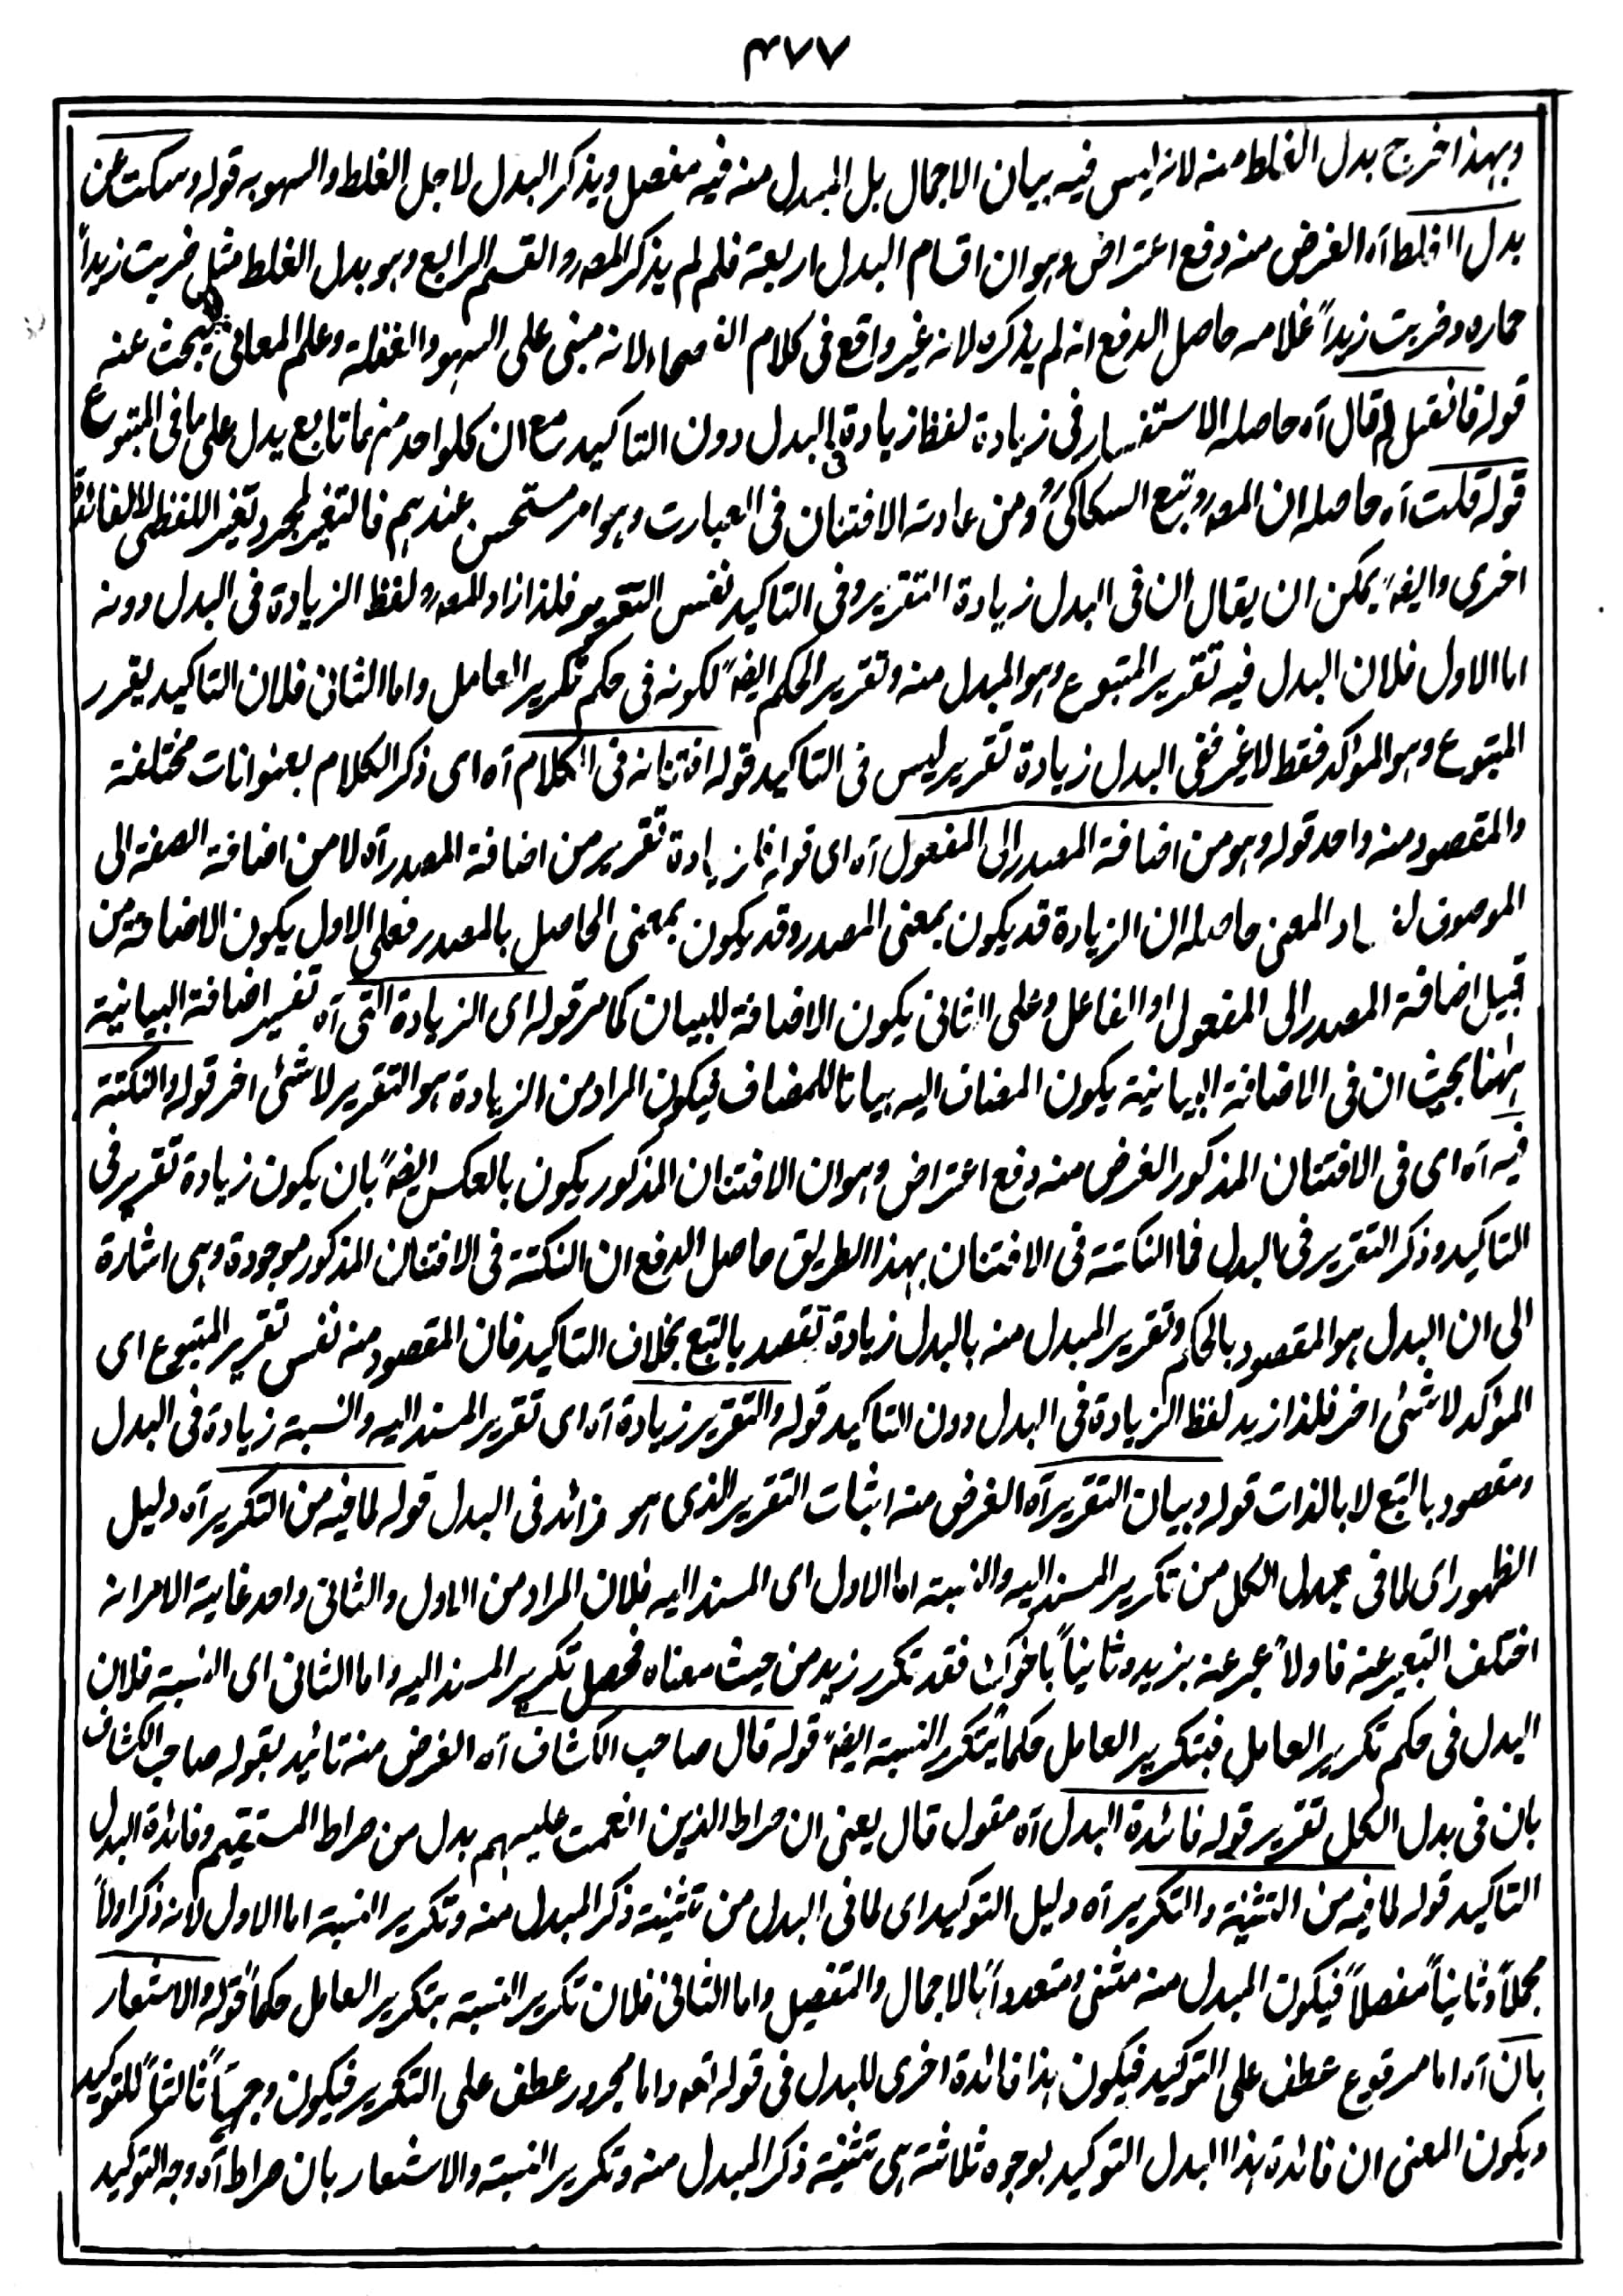 ۴۷۷
وبهذا خرج بدل الغلط منه لانه ليس فيه بيان الاجمال بل المبدل منه فيه مفصل ويذكر البدل لاجل الغلط والسهو به قوله وسكت عن
بدل الغلط آه الغرض منه دفع اعتراض وهو ان اقسام البدل اربعة فلم لم يذكر المصرو القسم الرابع وهو بدل الغلط مثل ضربت زيداً
حماره وضربت زيداً غلامه حاصل الدفع انه لم يذكره لانه غير واقع فى كلام الفصحاء لانه مبنى على السهو والغفلة وعلم المعانى يبحث عنه
قوله فانقيل لم قال آه حاصله الاستفسار فى زيادة لفظ زيادة فى البدل دون التاكيد مع ان كلواحد منهما تابع يدل على ما فى المتبوع
قوله قلت آه حاصله ان المصرو تبع السكاكىؒ ومن عادته الافتنان فى العبارت وهو امر مستحسن عندهم فالتغير لمجرد تغير اللفظى لا لفائدة
اخرى وايضاً يمكن ان يقال ان فى البدل زيادة التقرير وفى التاكيد نفس التقرير فلذا زاد المصرو لفظ الزيادة فى البدل دونه
اما الاول فلان البدل فيه تقرير المتبوع وهو المبدل منه وتقرير الحكم ايضاً لكونه فى حكم تكرير العامل واما الثانى فلان التاكيد يقرر
المتبوع وهو المؤكد فقط لا غير ففى البدل زيادة تقرير ليس فى التاكيد قوله افتنانه فى الكلام آه اى ذكر الكلام بعنوانات مختلفة
والمقصود منه واحد قوله وهو من اضافة المصدر الى المفعول آه اى قولنا زيادة تقرير من اضافة المصدر آه لا من اضافة الصفة الى
الموصوف لفساد المعنى حاصله ان الزيادة قد يكون بمعنى المصدر وقد يكون بمعنى الحاصل بالمصدر فعلى الاول يكون الاضافة من
قبيل اضافة المصدر الى المفعول او الفاعل وعلى الثانى يكون الاضافة للبيان كما مر قوله اى الزيادة التى آه تفسير اضافة البيانية
ههنا بحيث ان فى الاضافة البيانية يكون المضاف اليه بيانا للمضاف فيكون المراد من الزيادة هو التقرير لا شئ اخر قوله والنكتة
فيه آه اى فى الافتنان المذكور الغرض منه دفع اعتراض وهو ان الافتنان المذكور يكون بالعكس ايضاً بان يكون زيادة تقرير فى
التاكيد وذكر التقرير فى البدل فما النكتة فى الافتنان بهذا الطريق حاصل الدفع ان النكتة فى الافتنان المذكور موجودة وهى اشارة
الى ان البدل هو المقصود بالحكم وتقرير المبدل منه بالبدل زيادة تقصد بالتبع بخلاف التاكيد فان المقصود منه نفس تقرير المتبوع اى
المؤكد لا شئ اخر فلذا زيد لفظ الزيادة فى البدل دون التاكيد قوله والتقرير زيادة آه اى تقرير المسند اليه والنسبة زيادة فى البدل
ومقصود بالتبع لا بالذات قوله وبيان التقرير آه الغرض منه اثبات التقرير الذى هو زائد فى البدل قوله لما فيه من التكرير آه دليل
الظهور اى لما فى بدل الكل من تكرير المسند اليه والنسبة اما الاول اى المسند اليه فلان المراد من الاول والثانى واحد غاية الامر انه
اختلف التعبير عنه فاولاً عبر عنه بزيد وثانياً باخوك فقد تكرر زيد من حيث معناه فحصل تكرير المسند اليه واما الثانى اى النسبة فلان
البدل فى حكم تكرير العامل فبتكرير العامل حكماً يتكرر النسبة ايضاً قوله قال صاحب الكشاف آه الغرض منه تائيد بقوله صاحب الكشاف
بان فى بدل الكل تقرير قوله فائدة البدل آه مقول قال يعنى ان صراط الذين انعمت عليهم بدل من صراط المستقيم وفائدة البدل
التاكيد قوله لما فيه من التثنية والتكرير آه دليل التوكيد اى لما فى البدل من تثنية ذكر المبدل منه وتكرير النسبة اما الاول لانه ذكر اولاً
مجملاً وثانياً مفصلاً فيكون المبدل منه مثنى ومتعدداً بالاجمال والتفصيل واما الثانى فلان تكرير النسبة بتكرير العامل حكماً قوله والاشعار
بان آه اما مرفوع عطف على التوكيد فيكون هذا فائدة اخرى للبدل فى قوله تعه واما مجرور عطف على التكرير فيكون وجهاً ثالثاً للتوكيد
ويكون المعنى ان فائدة هذا البدل التوكيد بوجوه ثلاثة هى تثنية ذكر المبدل منه وتكرير النسبة والاشعار بان صراط آه وجه التوكيد